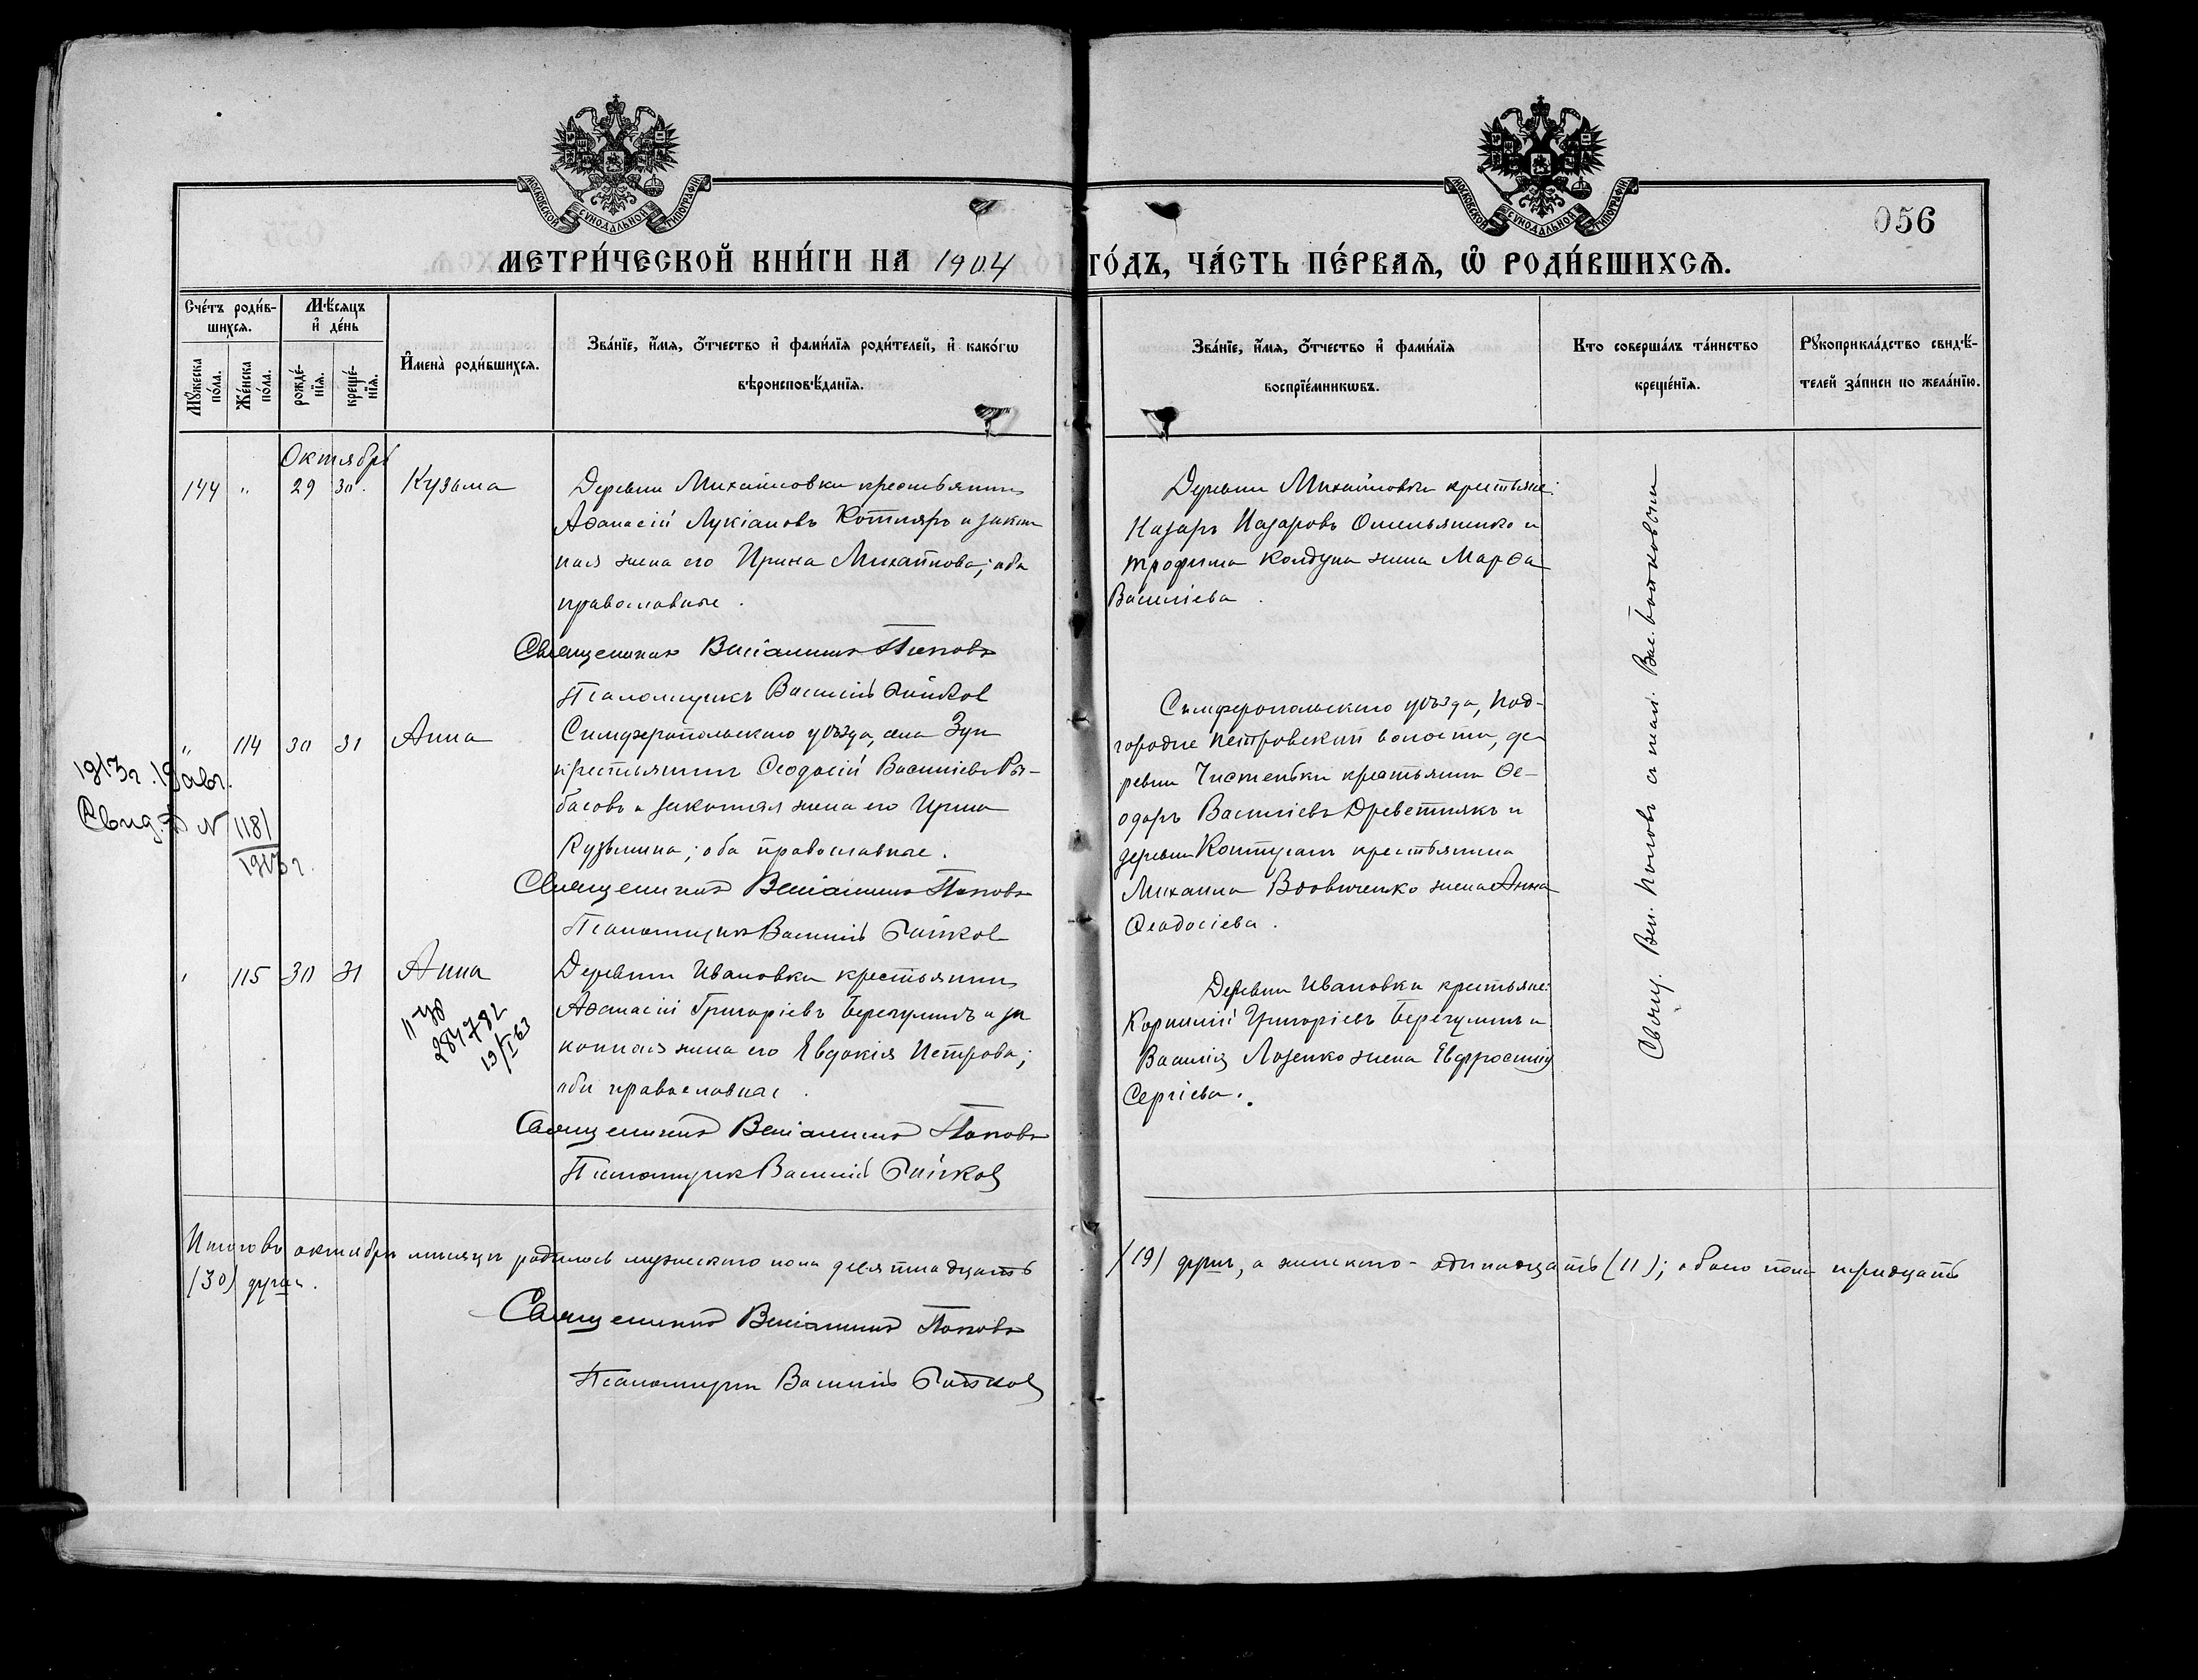 МОСКОВСКОЙ СУНОДАЛЬНОЙ ТИПОГРАФІИ
МОСКОВСКОЙ СУНОДАЛЬНОЙ ТИПОГРАФІИ
056
МЕТРИ́ЧЕСКОЙ КНИ́ГИ НА 1904 ГО́ДЪ, ЧА́СТЬ ПЕ́РВАѦ, Ѡ҆ РОДИ́ВШИХСѦ.
Сче́тъ роди́в-
шихсѧ.
Мѣ́сѧцъ
и҆ де́нь
Мꙋ́жеска
по́ла.
Же́нска
по́ла.
рожде́-
нїѧ.
креще́-
нїѧ.
И҆мена̀ роди́вшихсѧ.
Зва́нїе, и҆́мѧ, ѻ҆́тчество и҆ фами́лїѧ роди́телей, и҆ како́гѡ
вѣроисповѣ́данїѧ.
Зва́нїе, и҆́мѧ, ѻ҆́тчество и҆ фами́лїѧ
воспрїе́мникѡвъ.
Кто соверша́лъ та́инство
креще́нїѧ.
Рꙋкоприкла́дство свидѣ́-
телей за́писи по жела́нїю.
Октябрь
144 " 29 30. Кузьма
Деревни Михайловки крестьянинъ
Аѳанасій Лукіановъ Котляръ и закон
ная жена его Ирина Михайлова; оба
православные.
Священникъ Веніаминъ Поповъ
Псаломщикъ Василій
Деревни Михайловки крестьяне:
Назаръ Назаровъ Омельяненко и
Трофима Колдуна жена Марѳа
Василіева.
" 114 30 31 Анна
Симферопольскаго уѣзда, села Зуи
крестьянинъ Ѳеодосій Василіевъ Ры-
басовъ и законная жена его Ирина
Кузьмина; оба православные.
Священникъ Веніаминъ Поповъ
Псаломщикъ Василій
1913г. 19 авг.
Свид. № 1181
1913г.
Симферопольскаго уѣзда, Под-
городне Петровской волости, де
ревни Чистенькой крестьянинъ Ѳе-
одоръ Василіевъ Древетнякъ и
деревни крестьянина
Михаила Вдовиченко жена Анна
Ѳеодосіева.
" 115 30 31 Анна
Деревни Ивановки крестьянинъ
Аѳанасій Григоріевъ Берегулинъ и за
конная жена его Евдокія Петрова;
оба православные.
Священникъ Веніаминъ Поповъ
Псаломщикъ Василій
284782
19/I 63
Деревни Ивановки крестьяне:
Корнилій Григоріевъ Берегулинъ и
Василія Лозенко жена Евфросинія
Сергіева.
Свящ. Вен. Поповъ съ псал. Вас.
Итого въ октябрѣ мѣсяцѣ родилось мужескаго пола девятнадцать (19) душъ, а женскаго - одинадцать (11); обоего пола тридцать
(30) душъ.
Священникъ Веніаминъ Поповъ
Псаломщикъ Василій